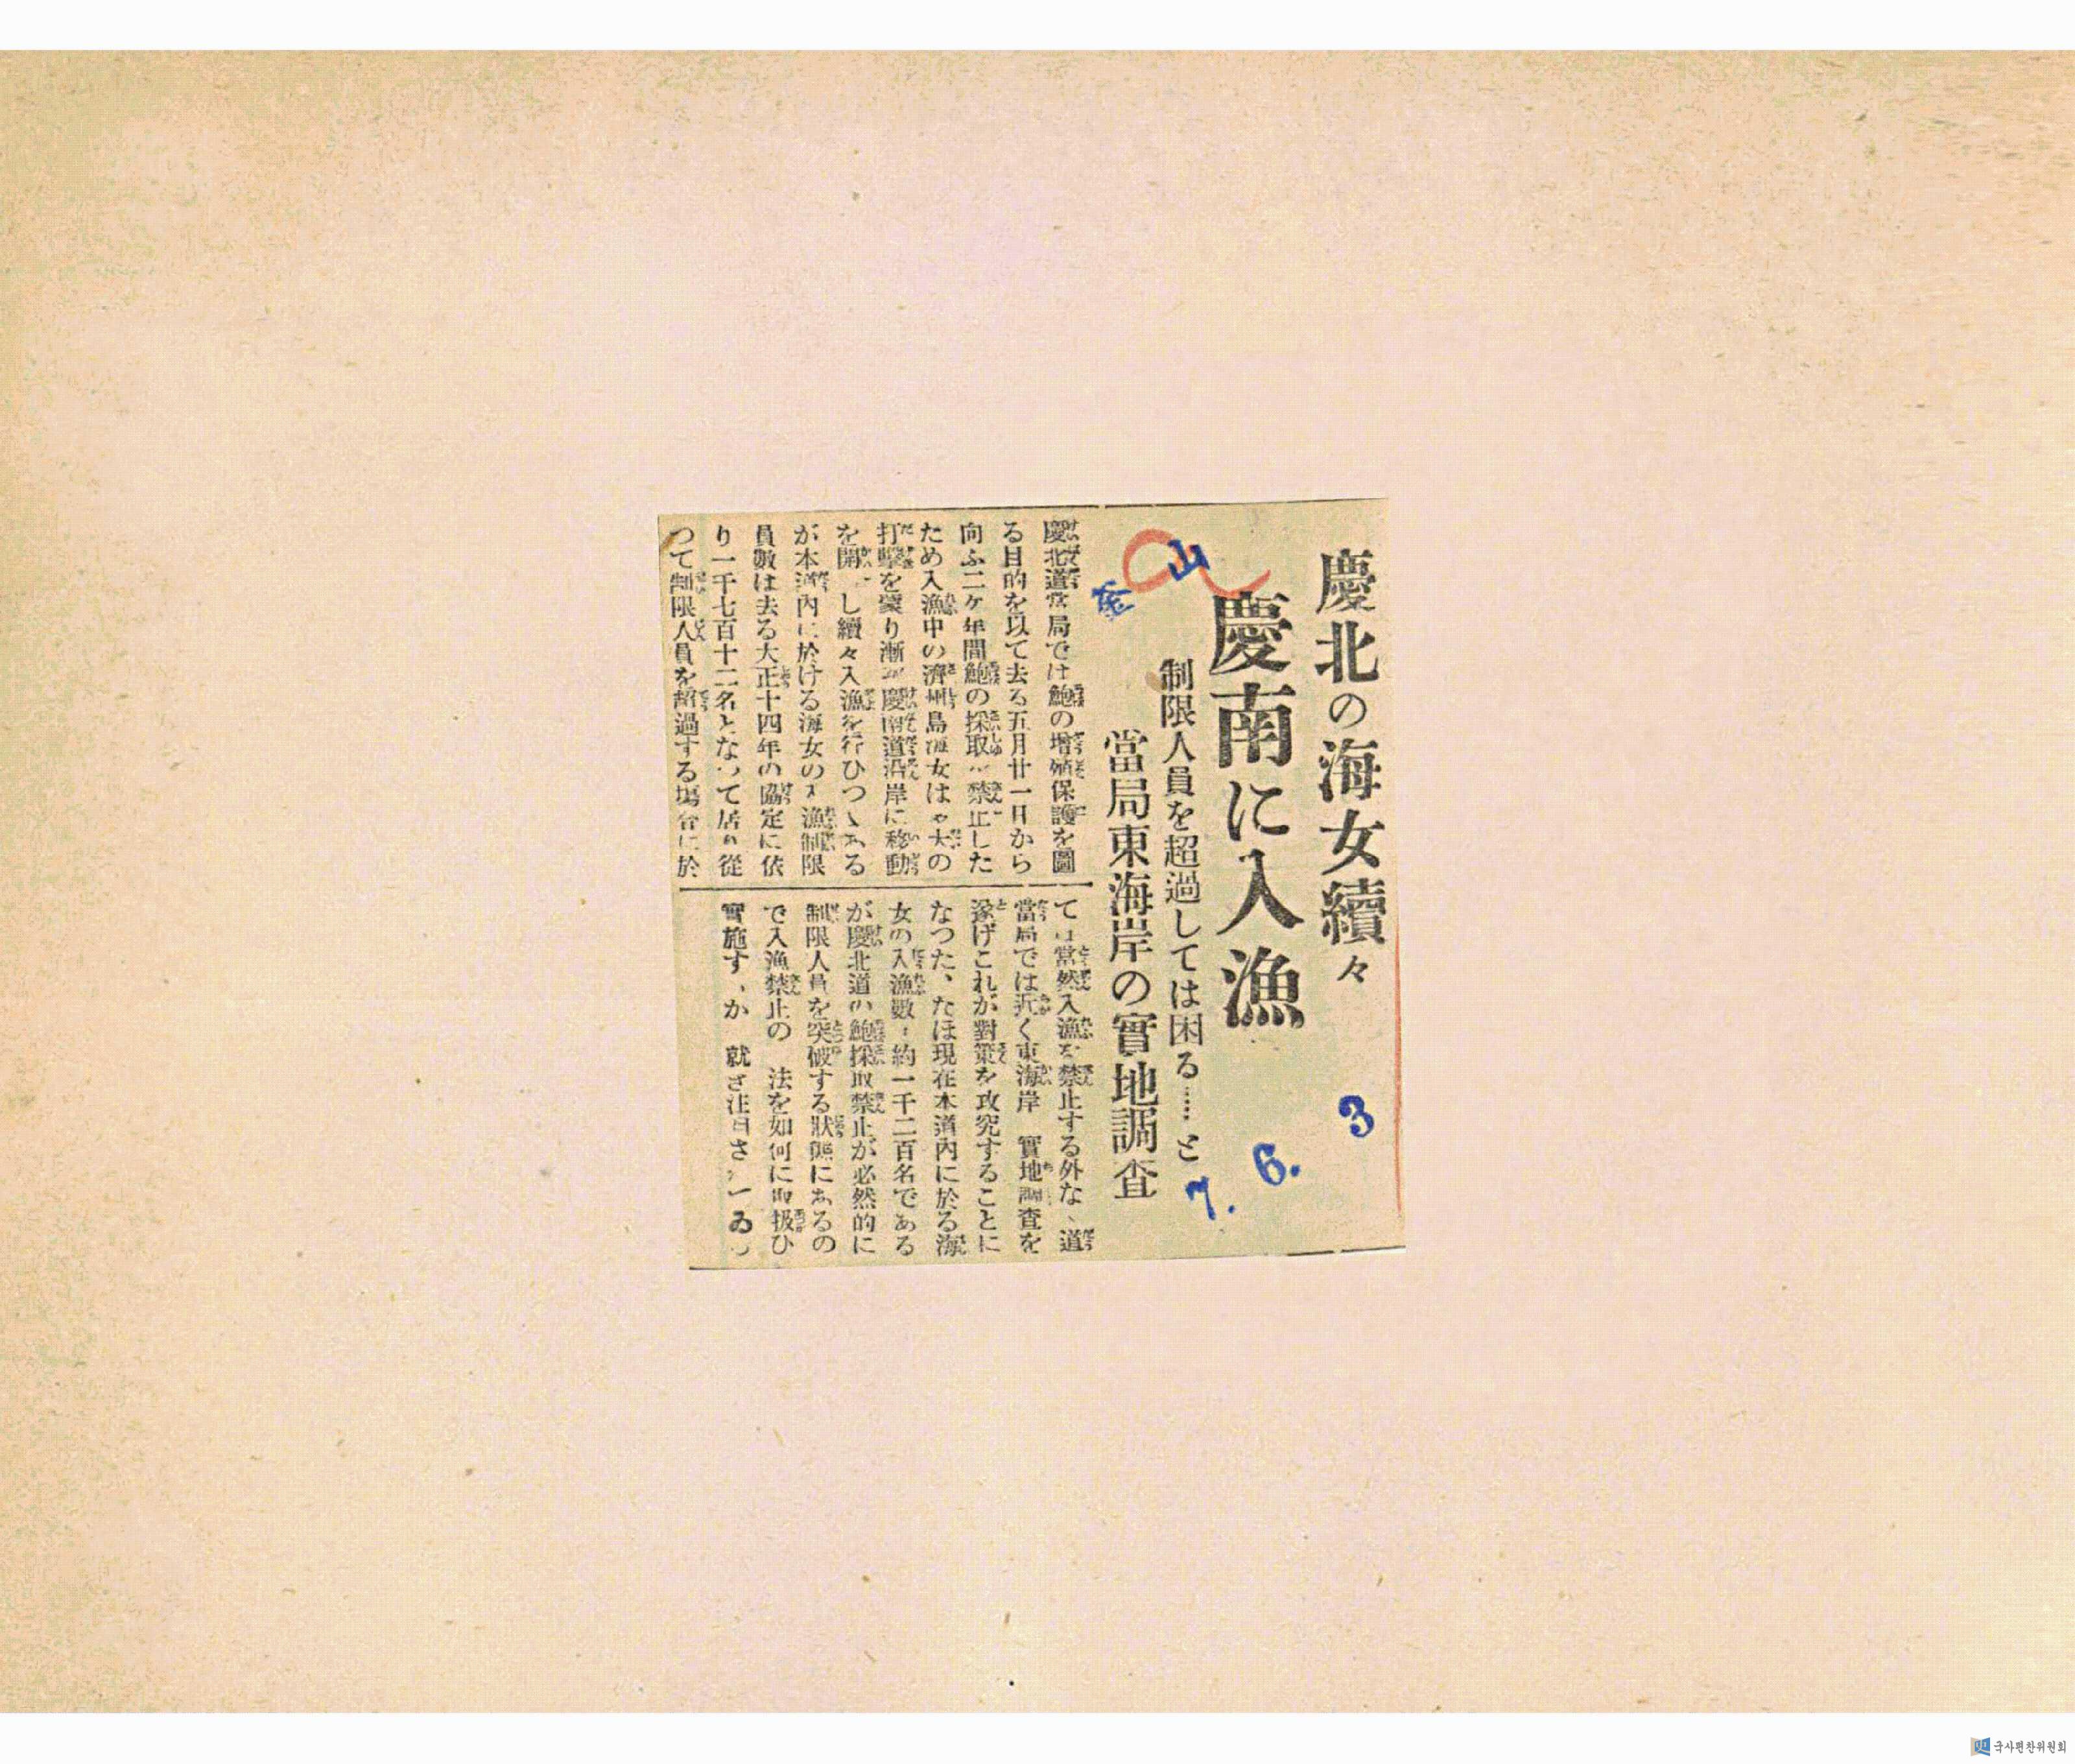 慶北の海女續々
慶南に入漁
制限人員を超過しては困る……と
當局東海岸の實地調査
釜山
7. 6. 3
慶北道當局では鮑の增殖保護を圖
る目的を以て去る五月廿一日から
向ふ二ケ年間鮑の採取 禁止した
ため入漁中の濟州島海女は 大の
打擊を蒙り漸 慶南道沿岸に移動
を開 し續々入漁を行ひつゝある
が本道內に於ける海女の入漁制限
員數は去る大正十四年の協定に依
り一千七百十二名となつて居り從
つて制限人員を超過する場合に於
ては當然入漁を禁止する外な 道
當局では近く東海岸 實地調査を
遂げこれが對策を攻究することに
なつた、なほ現在本道內に於る海
女の入漁數 約一千二百名である
が慶北道の鮑採取禁止が必然的に
制限人員を突破する狀態にあるの
で入漁禁止の 法を如何に取扱ひ
實施す か 就き注目さ ゐ
국사편찬위원회